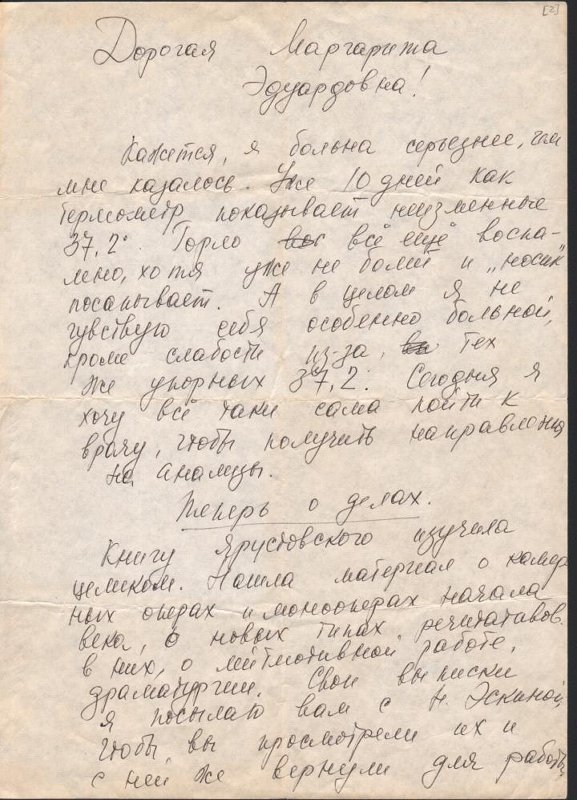 [2]
Дорогая Маргарита
Эдуардовна!
Кажется, я больна серьезнее, чем
мне казалось. Уже 10 дней как
термометр показывает неизменные
37,2°. Горло всё ещё воспа-
лено, хотя уже не болит и „носик"
посапывает. А в целом я не
чувствую себя особенно больной,
кроме слабости из-за, тех
же упорных 37,2°. Сегодня я
хочу всё таки сама пойти к
врачу, чтобы получить направления
на анализы.
Теперь о делах.
Книгу Ярустовского изучила
целиком. Нашла материал о камер
ных операх и моноoперах начала
века, о новых типах речитативов
в них, о лейтмотивной работе,
драматургии. Свои выписки
я посылаю вам с Н. Эскиной,
чтобы вы просмотрели их и
с ней же вернули для работы,